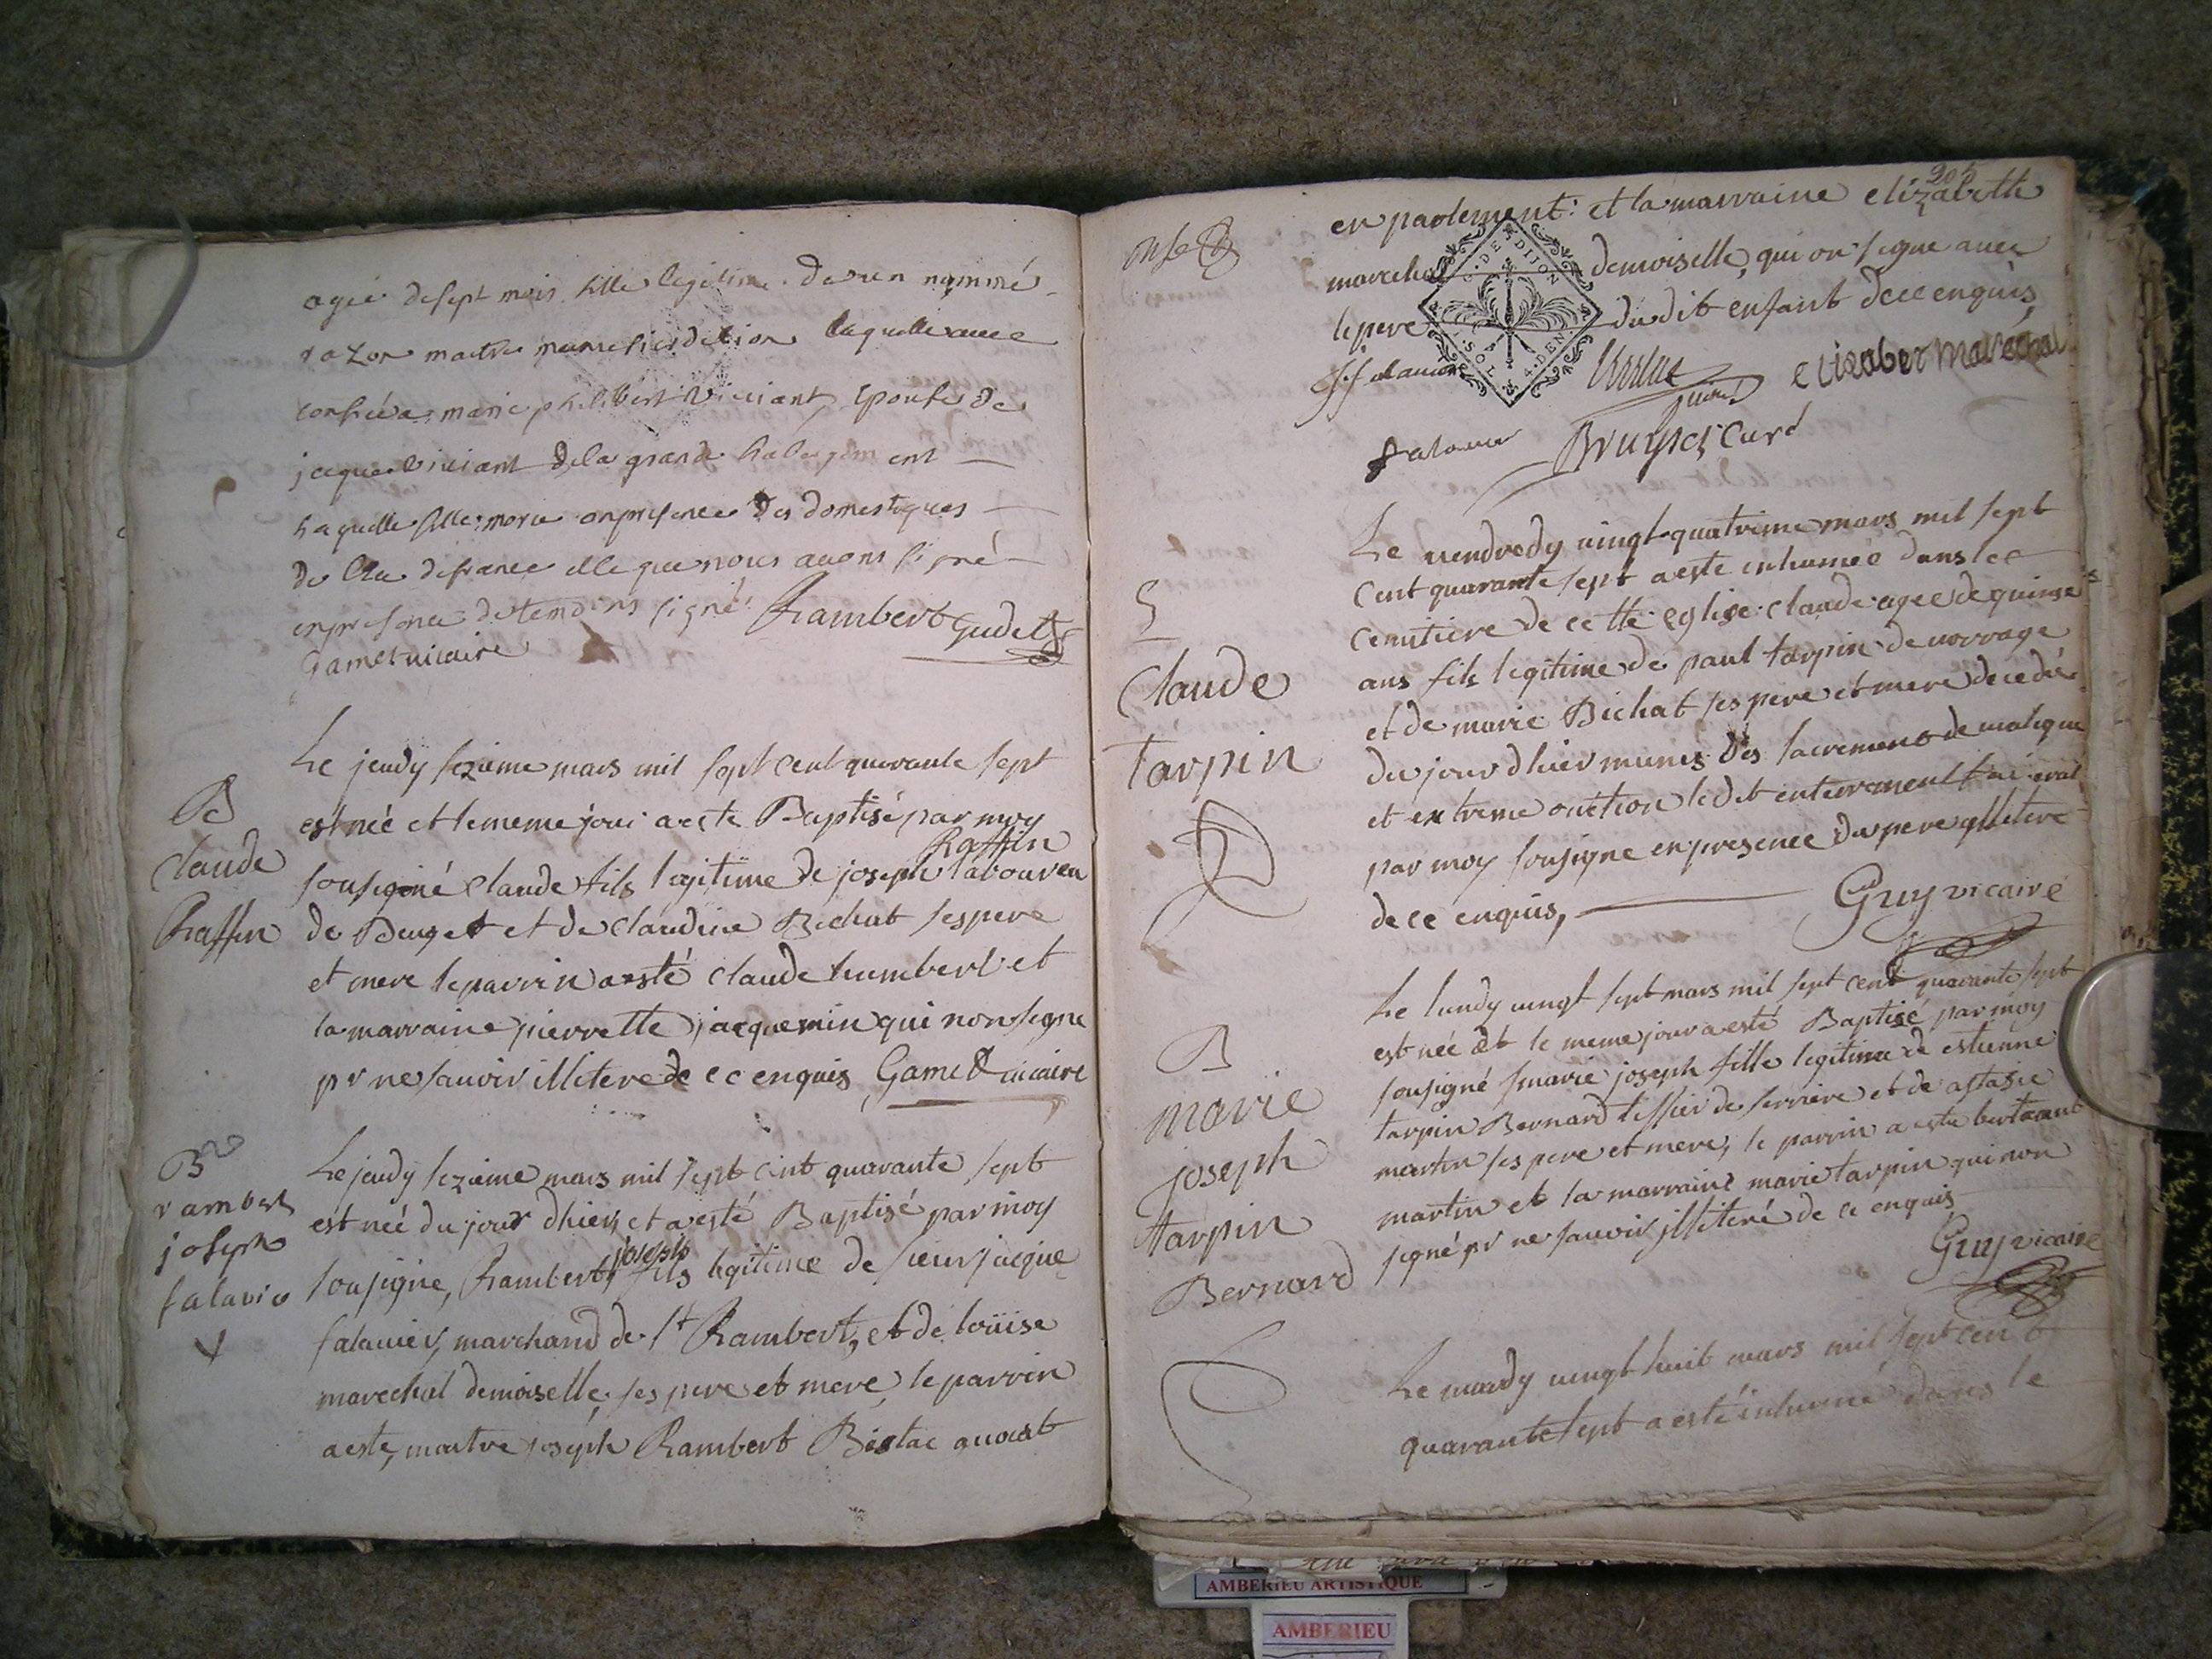 agée de sept mois fille legitime de
razon maitre de lion laquelle
confiée a marie philibert viciant epouse de
jaque viciant de la grande
laquelle fille morie en presence des domestiques
de elle que nous avons signé
en presence de temoins signé Rambert Gudet
Gamet vicaire
B
Claude
Raffin
Le jeudy sezieme mars mil sept cent quarante sept
est née et le meme jour a este Baptisé par moy
Raffin
sousigné claude fils legitime de joseph laboureu
de Beuget et de claudine Bichat ses pere
et mere le parrin a esté claude humbert et
la marraine pierrette jacquemin qui non signe
pr ne sauoir illitere de ce enquis Gamet vicaire
B
rambert
joseph
falavie
Le jeudy sezieme mars mil sept cint quarante sept
est née du jour dhier, et a esté Baptisé par moy
joseph
sousigne, Rambert, fils legitime de sieur jacque
falauier, marchand de St Rambert, et de loüise
marechal demoiselle, ses pere et mere, le parrin
a este, maitre joseph Rambert Bistac auocat
205
en parlement: et la marraine elizabeth
marechal demoiselle, qui on signe auec
le pere du dit enfant de ce enquis
G. DE DIJON
SOL 4. DEN.
elizabet marechal
falauier Bruyset Curé
S
Claude
tarpin
Le vendredy vingt quatrieme mars mil sept
cent quarante sept a este inhumée dans le
cemitiere de cette eglise claude agee de quinse
ans fils legitime de paul tarpin de vorrage
et de marie Bichat ses pere et mere decedée
du jour dhier munis des sacremens de
et extreme onction le dit enterrement
par moy sousigne en presence du pere jllitere
de ce enquis, Guy vicaire
B
marie
joseph
tarpin
Bernard
Le lundy vingt sept mars mil sept cent quarante sept
est née et le meme jour a esté Baptisé par moy
sousigné marie joseph fille legitime de estienne
tarpin Bernard tissier de serriere et de astasie
martin ses pere et mere, le parrin a este
martin et la marraine marie tarpin qui non
signé pr ne sauoir jlliteré de ce enquis
Guy vicaire
Le mardy vingt huit mars mil sept cent
quarante sept a esté inhumé dans le
AMBERIEU ARTISTIQUE
AMBERIEU